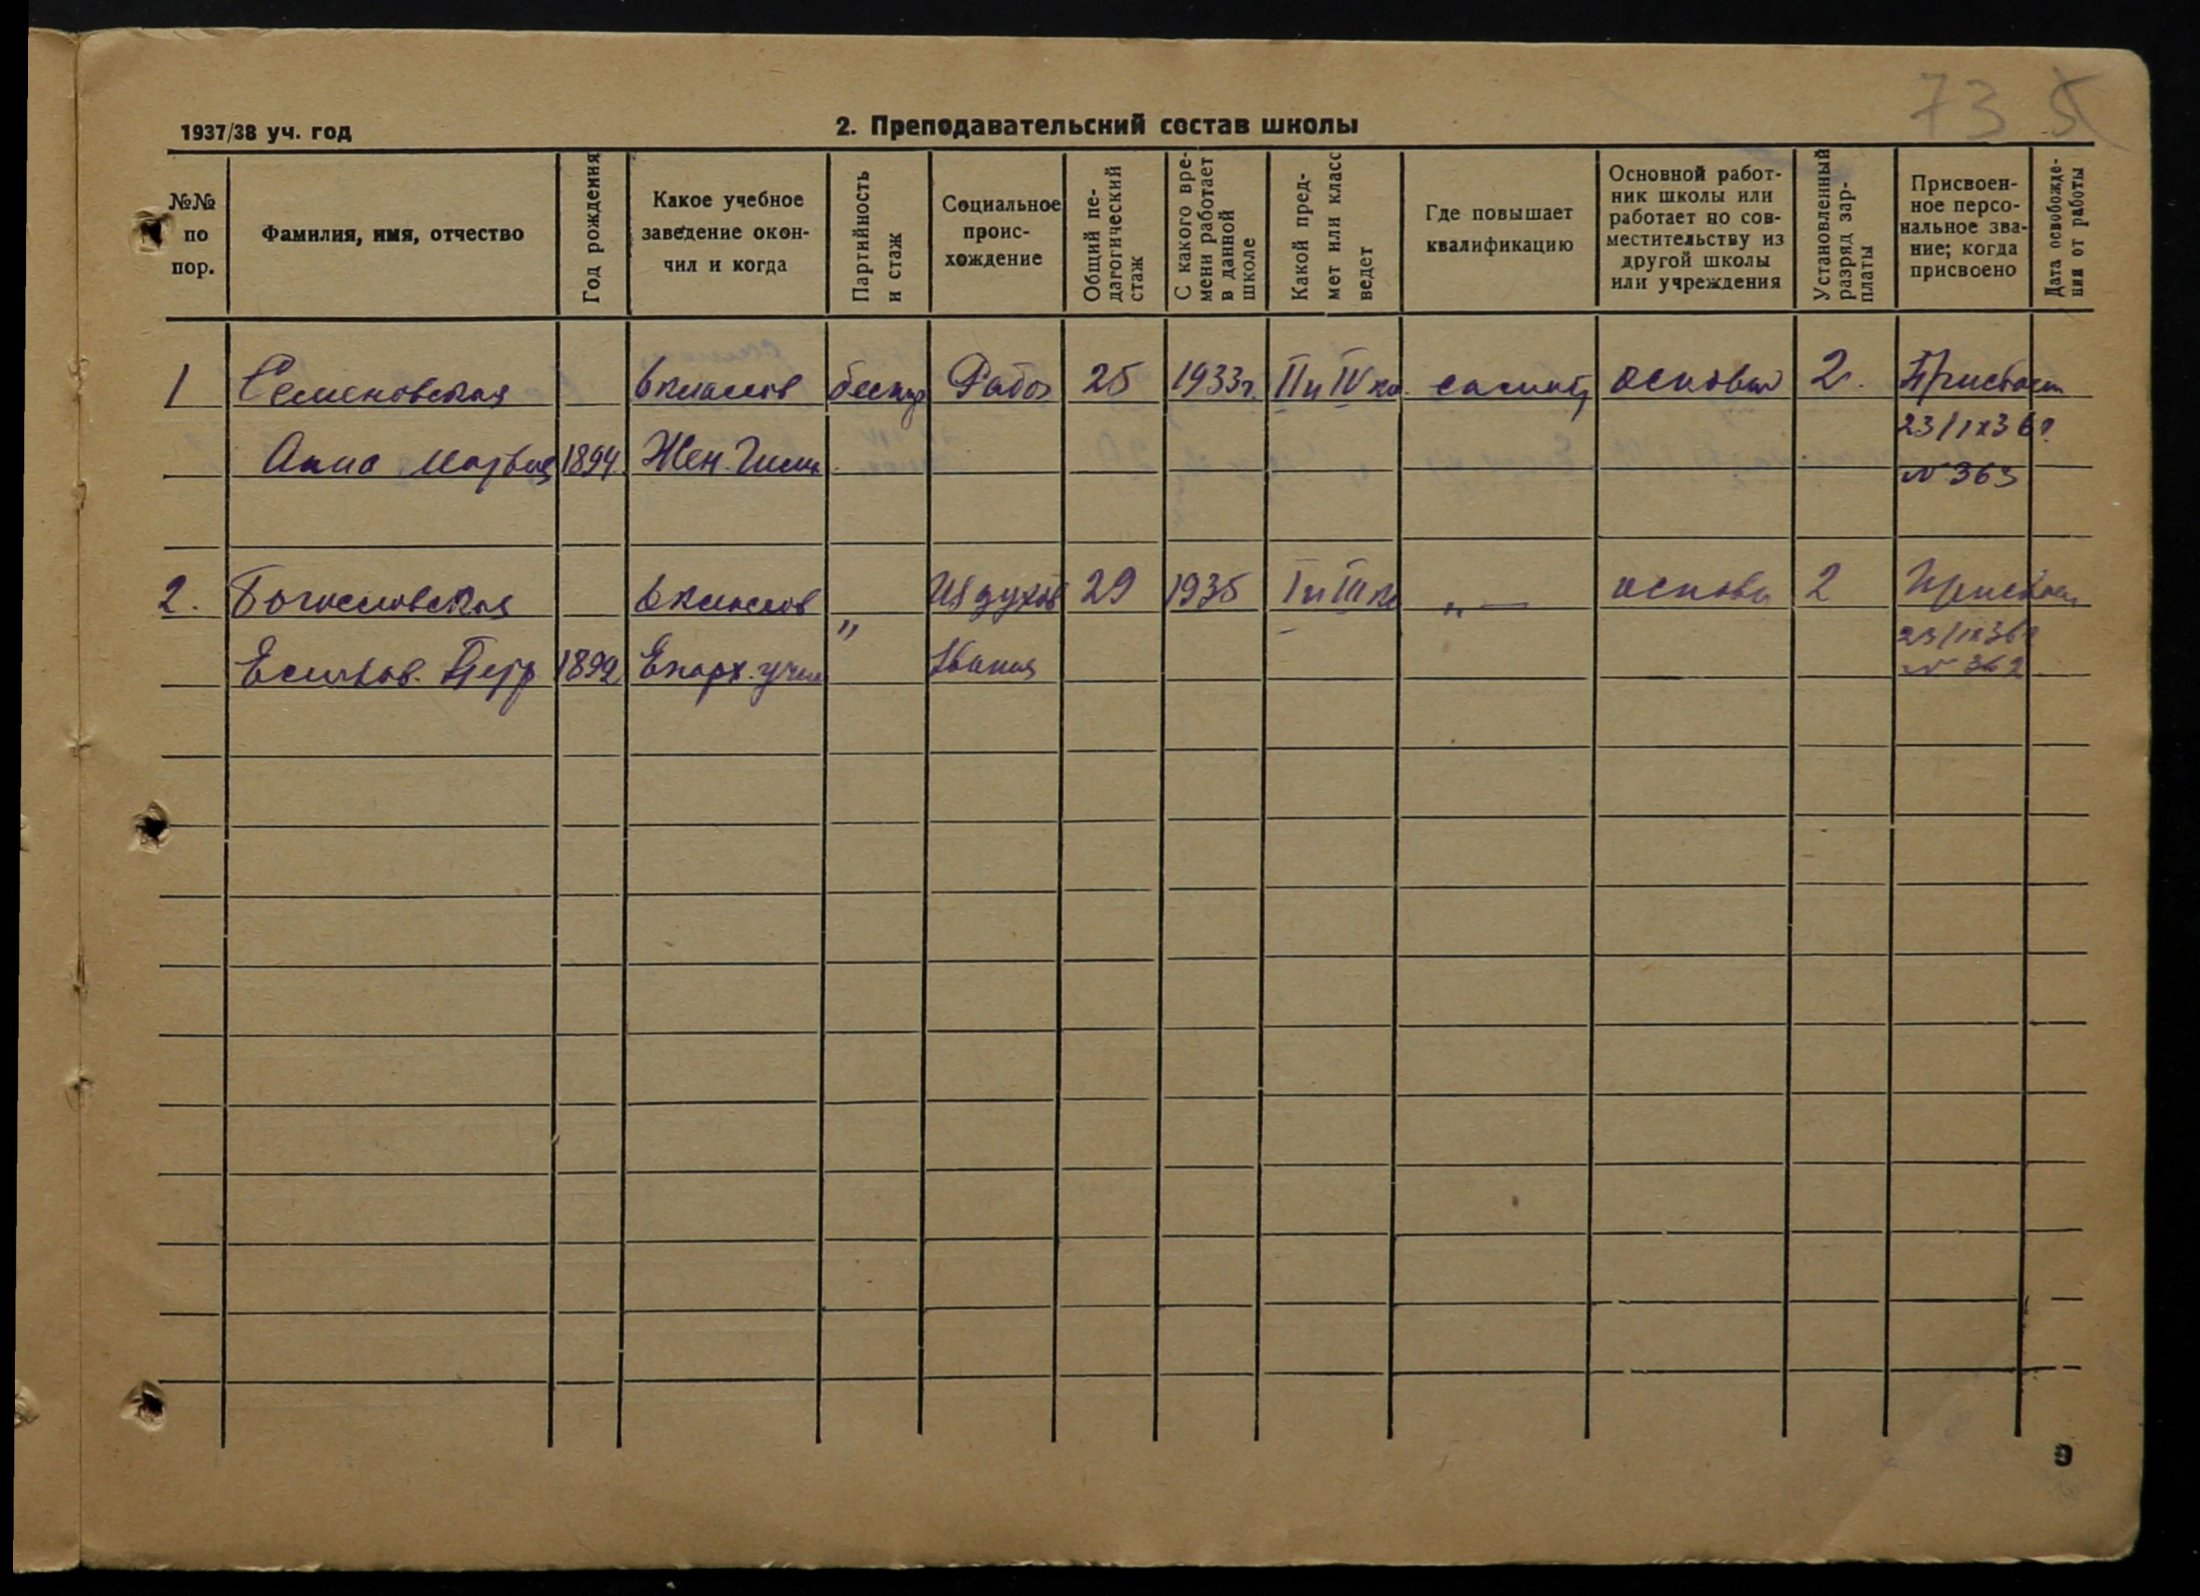 73 5
1937/38 уч. год
2. Преподавательский состав школы
№№ по пор.
Фамилия, имя, отчество
Год рождения
Какое учебное заведение окончил и когда
Партийность и стаж
Социальное происхождение
Общий педагогический стаж
С какого времени работает в данной школе
Какой предмет или класс ведет
Где повышает квалификацию
Основной работник школы или работает по совместительству из другой школы или учреждения
Установленный разряд зарплаты
Присвоенное персональное звание; когда присвоено
Дата освобождения от работы
1 Семеновская 6 классов беспар Рабоч 25 1933г. II и IV кл. основной 2. Присвоен
23/IX36г.
Анна Матвеев 1894 Жен. Гимн. N 363
2. Богословская 6 классов " Из духов 29 1935 I и III кл " — основн 2 Присвоен
23/IX36г
Петр 1892 Епарх. учил звания N 362
9